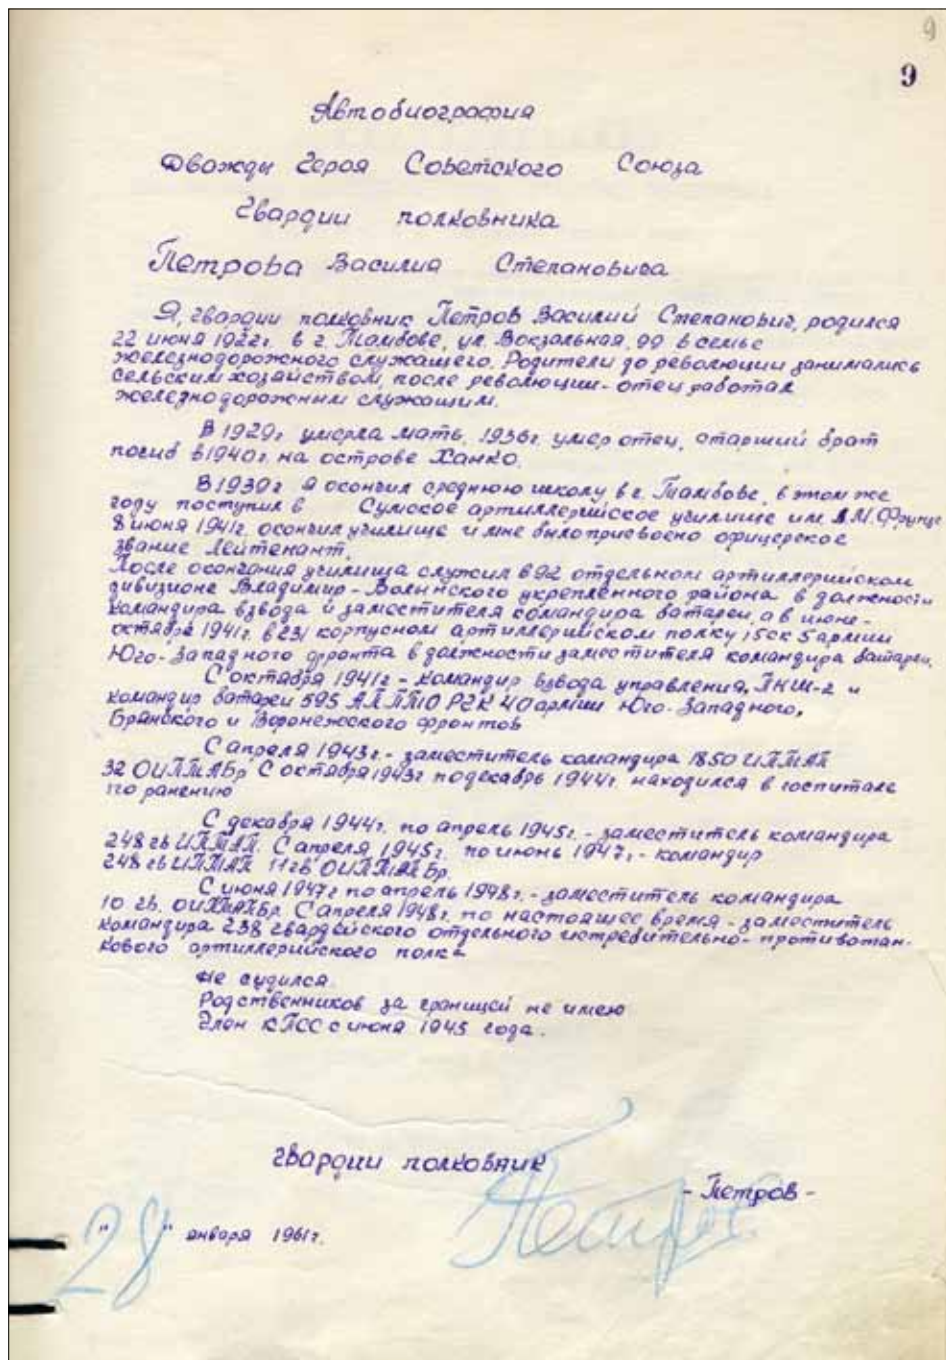 9
9
Автобиография
Дважды Героя Советского Союза
Гвардии полковника
Петрова Василия Степановича
Я, гвардии полковник Петров Василий Степанович, родился
22 июня 1922г. в г. Тамбове, ул. Вокзальная, 99 в семье
железнодорожного служащего. Родители до революции занимались
сельским хозяйством, после революции- отец работал
железнодорожным служащим.
В 1929г умерла мать, 1936г. умер отец, старший брат
погиб в 1940г. на острове Ханко.
В 1939г я окончил среднюю школу в г. Тамбове, в этом же
году поступил в Сумское артиллерийское училище им. М. Фрунзе
8 июня 1941г. окончил училище и мне было присвоено офицерское
звание Лейтенант.
После окончания училища служил в 92 отдельном артиллерийском
дивизионе Владимир-Волынского укрепленного района в должности
командира взвода и заместителя командира батареи, а в июне-
октябре 1941г. в 231 корпусном артиллерийском полку 15ск 5 армии
Юго-Западного фронта в должности заместителя командира батареи.
С октября 1941г - командир взвода управления, ПНШ-2 и
командир батареи 595 АП ПТО РГК 40 армии Юго-Западного,
Брянского и Воронежского фронтов
С апреля 1943г. - заместитель командира 1850 ИПТАП
32 ОИПТАБр С октября 1943г по декабрь 1944г. находился в госпитале
по ранению
С декабря 1944г. по апрель 1945г. - заместитель командира
248 гв ИПТАП. С апреля 1945г. по июнь 1947г. - командир
248 гв ИПТАП 11 гв. ОИПТАБр.
С июня 1947г по апрель 1948г. - заместитель командира
10 гв. ОИПТАБр. С апреля 1948г. по настоящее время - заместитель
командира 238 гвардейского отдельного истребительно-противотан-
кового артиллерийского полка
Не судился.
Родственников за границей не имею
Член КПСС с июня 1945 года.
гвардии полковник
- Петров -
"28" января 1961г.
Петров